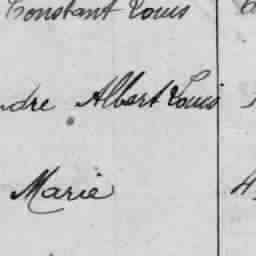 Constant Louis
ndre Albert Louis
Marie